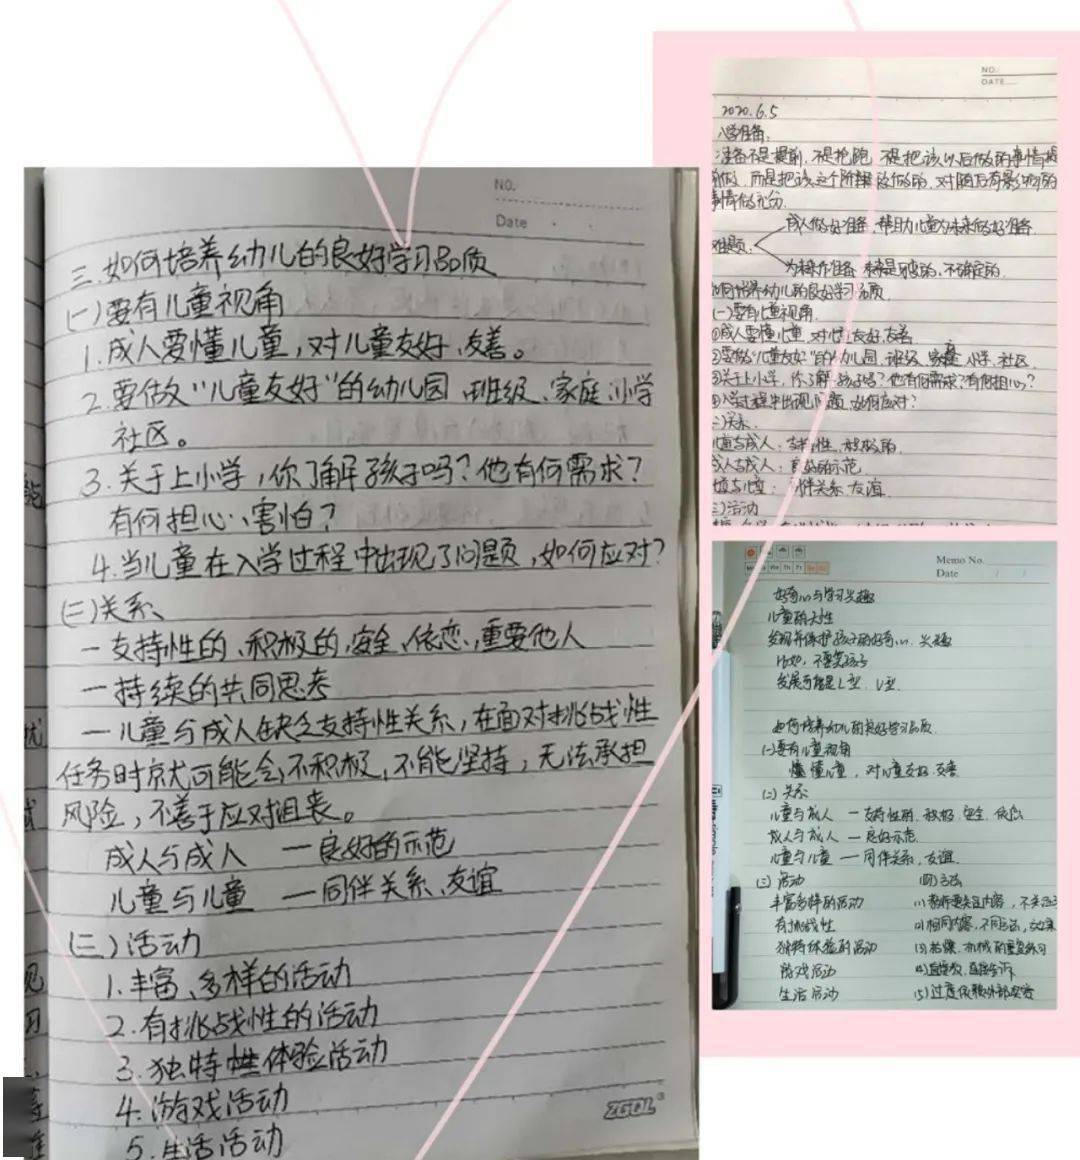 NO.
Date
三.如何培养幼儿的良好学习品质
(一)要有儿童视角
1.成人要懂儿童,对儿童友好、友善。
2.要做“儿童友好”的幼儿园、班级、家庭、小学
社区。
3.关于上小学,你了解孩子吗?他有何需求?
有何担心、害怕?
4.当儿童在入学过程中出现了问题,如何应对?
(二)关系
一支持性的、积极的、安全、依恋、重要他人
一持续的共同思考
一儿童与成人缺乏支持性关系,在面对挑战性
任务时就可能会不积极,不能坚持,无法承担
风险,不善于应对沮丧。
成人与成人 一良好的示范
儿童与儿童 一同伴关系、友谊
(三)活动
1.丰富、多样的活动
2.有挑战性的活动
3.独特性体验活动
4.游戏活动
5.生活活动
ZGOL
NO.
DATE
2020.6.5
入学准备:
准备不是提前,不是抢跑 不是把该以后做的事情提
前做,而是把该这个阶段该做的,对随后有影响的
事情做充分.
成人做好准备 帮助儿童为未来做好准备.
难题:
为未来作准备 未来是可变的,不确定的.
如何培养幼儿的良好学习品质.
(一)要有儿童视角.
①成人要懂儿童,对儿童友好,友善
②要做“儿童友好”的幼儿园、班级、家庭、小学、社区
③关于上小学,你了解孩子吗?他有何需求?有何担心?
④入学过程中出现问题,如何应对?
(二)关系.
儿童与成人:支持性、积极的.
成人与成人:良好的示范
儿童与儿童:同伴关系、友谊.
(三)活动
Memo No.
Date
Mo Tu We Th Fr Sa Su
好奇心与学习兴趣
儿童的天性
发现并保护孩子的好奇心、兴趣
比如,不要笑孩子
发展可能是L型、V型.
如何培养幼儿的良好学习品质.
(一)要有儿童视角
懂儿童,对儿童友好、友善
(二)关系
儿童与成人 一支持性的、积极、安全、依恋
成人与成人 一良好示范.
儿童与儿童 一同伴关系,友谊.
(三)活动 (四)方法
丰富多样的活动 (1)教师更关注内容,不关注
有挑战性 (2)相同内容,不同方法,效果
独特体验的活动 (3)枯燥、机械的重复练习
游戏活动 (4)直接教、直接告诉
生活活动 (5)过度依赖外部奖赏